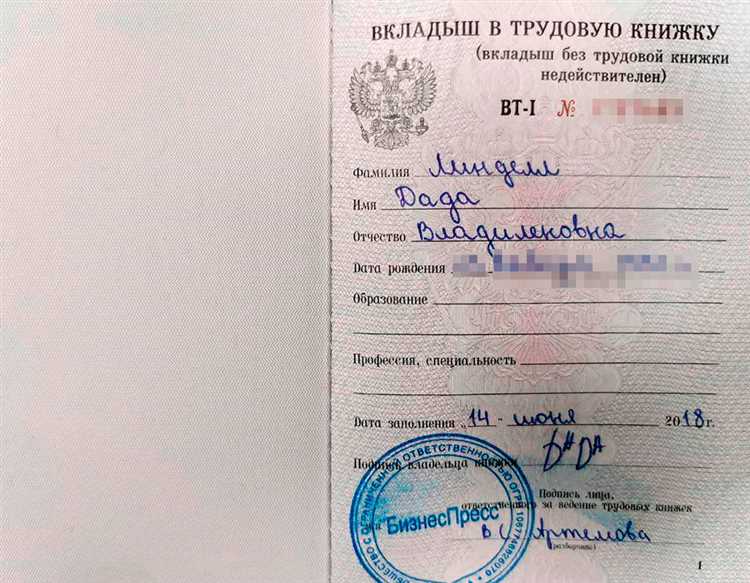 ВКЛАДЫШ В ТРУДОВУЮ КНИЖКУ
(вкладыш без трудовой книжки
недействителен)
ВТ-I №
Фамилия Линделл
Имя Дада
Отчество Владиленовна
Дата рождения
Образование
Профессия, специальность
Дата заполнения „14 - июня 2018 г.
Подпись владельца книжки
Подпись лица,
ответственного за ведение трудовых книжек
Артемова
(разборчиво)
ОБЩЕСТВО С ОГРАНИЧЕННОЙ ОТВЕТСТВЕННОСТЬЮ ОГРН
БизнесПресс
1